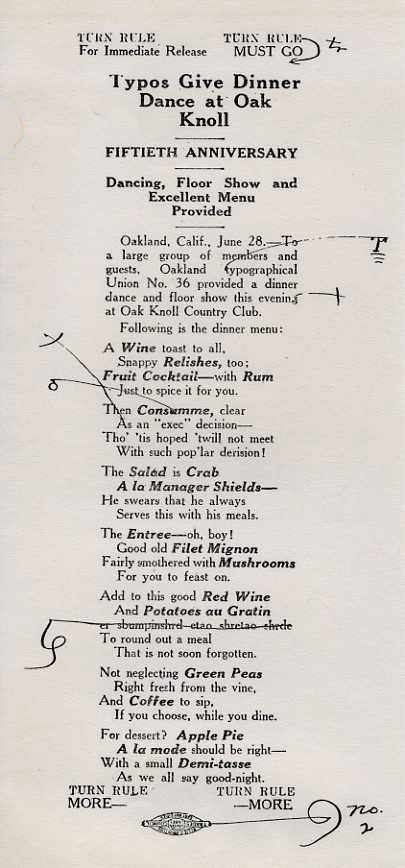 TURN RULE TURN RULE
For Immediate Release MUST GO
Typos Give Dinner
Dance at Oak
Knoll
FIFTIETH ANNIVERSARY
Dancing, Floor Show and
Excellent Menu
Provided
Oakland, Calif., June 28.—To
a large group of members and
guests, Oakland typographical T
Union No. 36 provided a dinner
dance and floor show this evening
at Oak Knoll Country Club.
Following is the dinner menu:
A Wine toast to all,
Snappy Relishes, too;
Fruit Cocktail—with Rum
Just to spice it for you.
Then Consumme, clear
As an "exec" decision—
Tho' 'tis hoped 'twill not meet
With such pop'lar derision!
The Salad is Crab
A la Manager Shields—
He swears that he always
Serves this with his meals.
The Entree—oh, boy!
Good old Filet Mignon
Fairly smothered with Mushrooms
For you to feast on.
Add to this good Red Wine
And Potatoes au Gratin
er sbumpinshrd etao shretao shrde
To round out a meal
That is not soon forgotten.
Not neglecting Green Peas
Right fresh from the vine,
And Coffee to sip,
If you choose, while you dine.
For dessert? Apple Pie
A la mode should be right—
With a small Demi-tasse
As we all say good-night.
TURN RULE TURN RULE
MORE— —MORE
no.
2